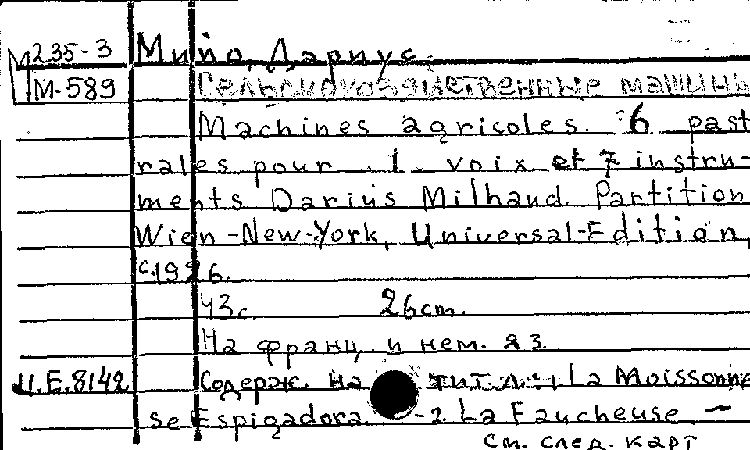 М235-3 Мийо, Дариус.
М-589 Сельскохозяйственные машины
Machines agricoles. 6 past
rales pour 1 voix et 7 instru-
ments Darius Milhaud. Partition
Wien-New-York, Universal-Edition,
c.1926.
43с. 26cm.
На франц. и нем. яз.
U.E.8142 Содерж. На тит.л.: 1 La Moissonne
se Espigadora - 2 La Faucheuse -
См. след. карт